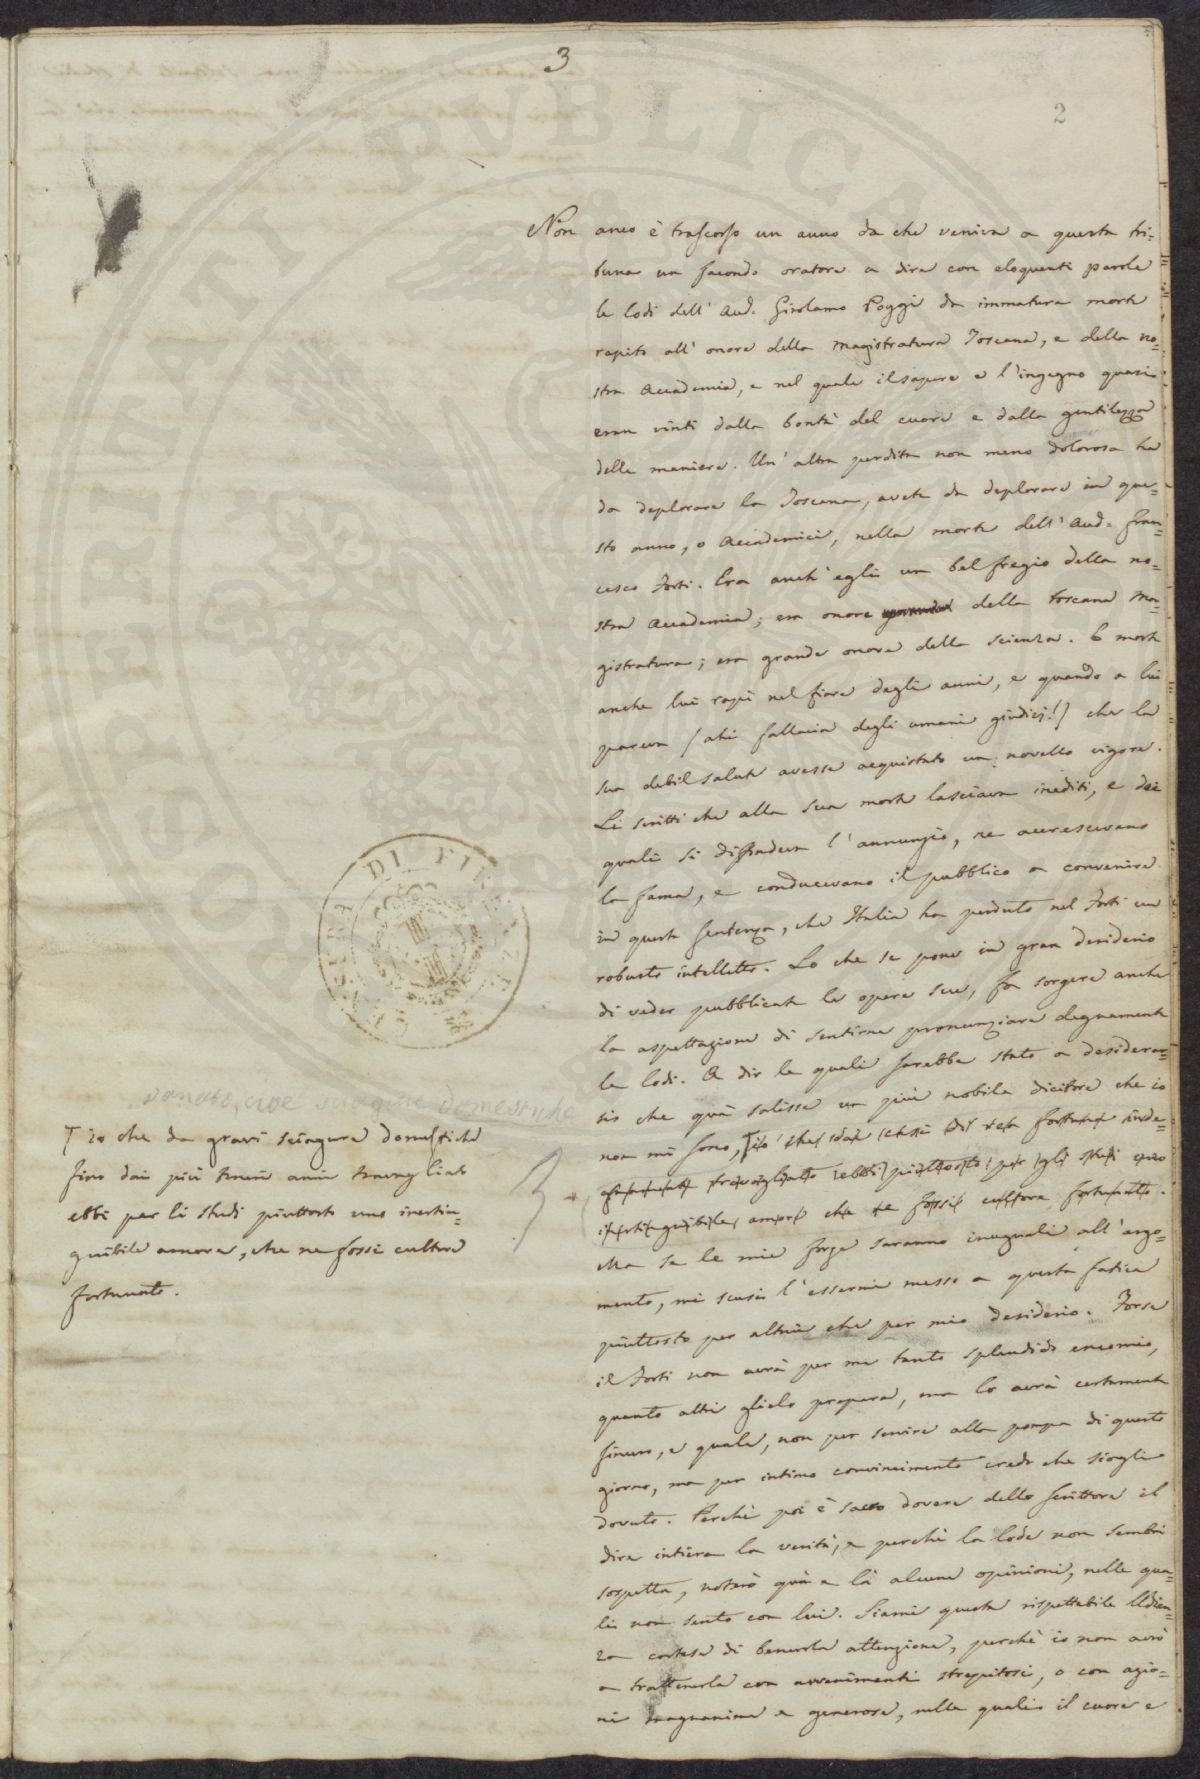 3
2
Non anco è trascorso un anno da che veniva a questa tri=
buna un facondo oratore a dire con eloquenti parole
le lodi dell' Aud. Girolamo Poggi da immatura morte
rapito all' onore della Magistratura Toscana, e della no=
stra Accademia, e nel quale il sapere e l'ingegno quasi
eran vinti dalla bontà del cuore e dalla gentilezza
delle maniere. Un' altra perdita non meno dolorosa ha
da deplorare la Toscana, avete da deplorare in que=
sto anno, o Accademici, nella morte dell' Aud. Fran=
cesco Forti. Era anch' egli un bel fregio della no=
stra Accademia; era onore della toscana Ma=
gistratura; era grande onore della scienza. E morte
anche lui rapì nel fiore degli anni, e quando a lui
pareva (ahi fallacia degli umani giudicj!) che la
sua debil salute avesse acquistato un novello vigore.
Li scritti che alla sua morte lasciava inediti, e dei
quali si diffondeva l'annunzio, ne accrescevano
la fama, e conducevano il pubblico a convenire
in questa sentenza, che Italia ha perduto nel Forti un
robusto intelletto. Lo che se pone in gran desiderio
di veder pubblicate le opere sue, fa sorgere anche
la aspettazione di sentirne pronunziare degnamente
le lodi. A dir le quali sarebbe stato a desiderar=
si che quà salisse un più nobile dicitore che io
non mi sono,
che ne fossi cultore fortunato.
Ma se le mie forze saranno ineguali all'argo=
mento, mi scusi l'essermi messo a questa fatica
piuttosto per altrui che per mio desiderio. Forse
il Forti non avrà per me tanto splendido encomio,
quanto altri glielo prepara, ma lo avrà certamente
sincero, e quale, non per servire alla pompa di questo
giorno, ma per intimo convincimento credo che siagli
dovuto. Perchè poi è sacro dovere dello scrittore il
dire intiera la verità, e perchè la lode non sembri
sospetta, noterò quà e là alcune opinioni, nelle qua=
li non sento con lui. Siami questa rispettabile Udien=
za cortese di benevola attenzione, perchè io non avrò
a trattenerla con avvenimenti strepitosi, o con azio=
ni magnanime e generose, nelle quali il cuore e
io che da gravi sciagure domestiche
fino dai più teneri anni travagliato
ebbi per li studi piuttosto uno inestin=
guibile amore, che ne fossi cultore
fortunato.